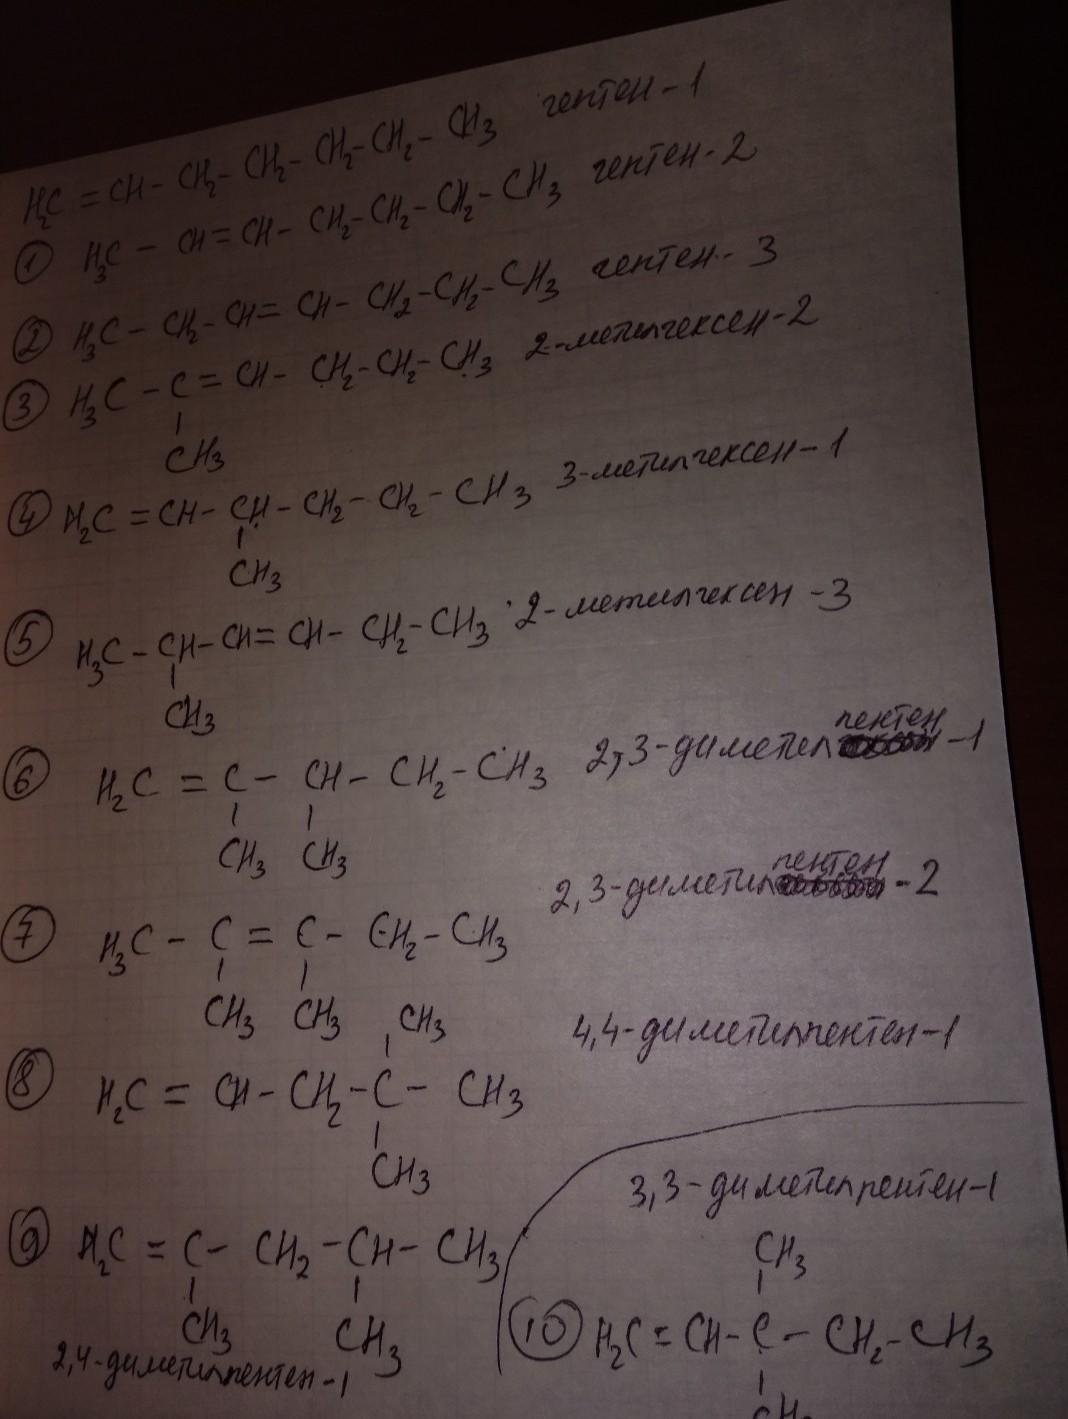 H₂C = CH - CH₂ - CH₂ - CH₂ - CH₂ - CH₃ гептен-1
① H₃C - CH = CH - CH₂ - CH₂ - CH₂ - CH₃ гептен-2
② H₃C - CH₂ - CH = CH - CH₂ - CH₂ - CH₃ гептен-3
③ H₃C - C = CH - CH₂ - CH₂ - CH₃ 2-метилгексен-2
CH₃
④ H₂C = CH - CH - CH₂ - CH₂ - CH₃ 3-метилгексен-1
CH₃
⑤ H₃C - CH - CH = CH - CH₂ - CH₃ 2-метилгексен-3
CH₃
⑥ H₂C = C - CH - CH₂ - CH₃ 2,3-диметилпентен-1
CH₃ CH₃
⑦ H₃C - C = C - CH₂ - CH₃ 2,3-диметилпентен-2
CH₃ CH₃
CH₃ 4,4-диметилпентен-1
⑧ H₂C = CH - CH₂ - C - CH₃
CH₃
⑨ H₂C = C - CH₂ - CH - CH₃
CH₃ CH₃
2,4-диметилпентен-1
3,3-диметилпентен-1
CH₃
⑩ H₂C = CH - C - CH₂ - CH₃